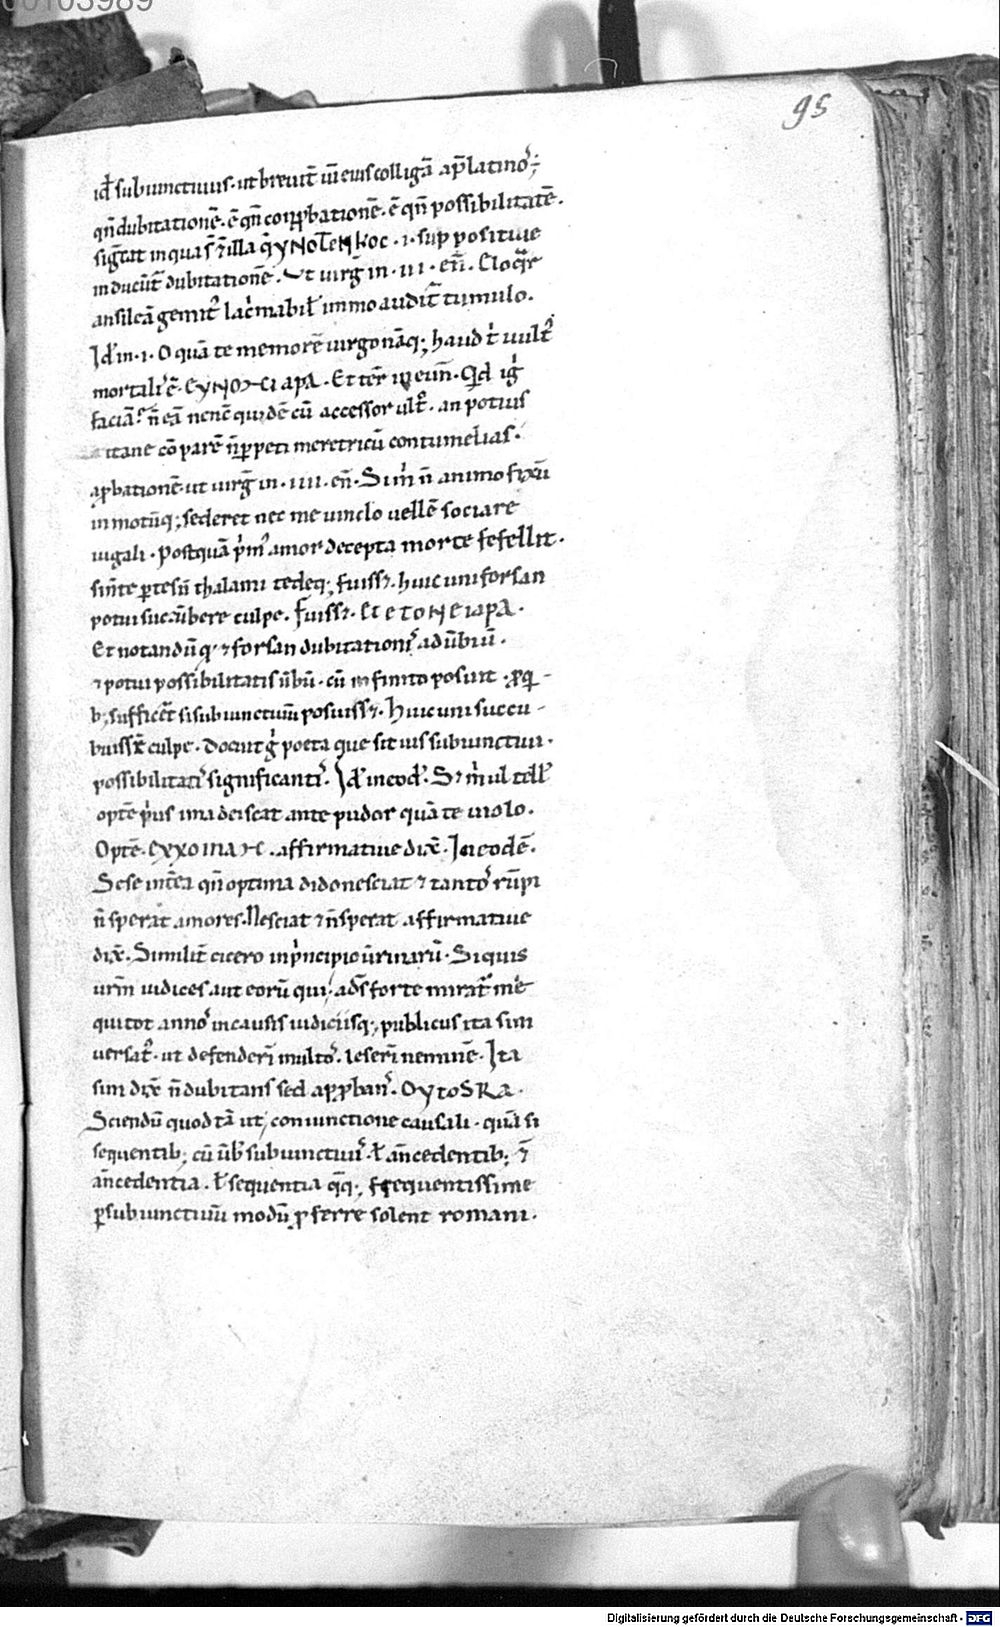 00103989
95
id̄ subiunctiuus · ut breuit̄ uī eius colligā ap̄ latinoꝝ;
qn̄ dubitationē · ē qn̄ conꝓbationē · ē qn̄ possibilitatē .
sig̅t at in qua s̄ ⁊ illa q̄ ΥΝΟΤΕΝΚΟC · i · suppositiue
inducūt dubitationē . Ut uirg̅ in · iii · en̄ . Eloq̄r
an silēā gemitꝰ lac̍mabil̄ immo auditᷓ tumulo .
Id̄ in · i · O quā te memorē uirgo nāq; haud t̍ uult᷒
mortali᷒ ē · ΕΥΝΟⱵCΙ ΑΡΑ . Et teŕ ī eun̄ . Qid ig̍
faciā · n̄ eā ne nē quidē cū accessor ult᷒ . an potius
ita ne cōparē n̄ ꝑpeti meretricū contumelias .
apꝓbationē · ut uirg̅ in · iiii · en̄ · Si m̍ n̄ animo fixū
inmotūq; sederet nec me uinclo uellē sociare
iugali · Postquā p̍m᷒ amor decepta morte fefellit .
si n̄ te ꝑtesū thalami tedeq; fuiss⁊ . huic uni forsan
potui succūbere culpe . fuiss⁊ . ЄΤ ЄΤΟΝЄΙΑΡΑ .
Et notandū q · ⁊ forsan dubitationi᷒ adub̄iū .
⁊ potui possibilitatis ūbū · cū infinito posuit · ꝓ qi -
b; suffic̄et si subiunctiuū posuiss⁊ . Huic uni succu -
buiss̄e culpe . Docuit g̍ poeta que sit uis subiunctiui .
possibilitati᷒ significanti᷒ . Id̄ in eod̄ . S⁊ m̍ ul tell᷒
optē p̍us ima deiscat ante pudor quā te uiolo .
Optē . ЄΥΧΟΙΜΑⱵC . affirmatiue dix̄ . In eodē .
Sese intēa qn̄ optima dido nesciat ⁊ tanto᷒ rūpi
n̄ sperat amores . Nesciat ⁊ n̄ sperat affirmatiue
dix̄ . Similit̄ cicero in p̍ncipio ūrinarū · Siquis
urm̄ iudices aut eorū qui ads̄ forte mirat᷒ me
qui tot anno᷒ in causis iudiciisq; publicus ita sim
uersat᷒ . ut defenderī multo᷒ . leserī neminē . Ita
sim dix̄ n̄ dubitans sed apꝓban᷒ . ΟΥΤΟSΚΑ .
Sciendū quod tā ut coniunctione causali · quā si
sequentib; cū ūb̄ subiunctiui᷒ · ł an̄cedentib; ⁊
an̄cedentia . ł sequentia q̄q; frequentissime
ꝑ subiunctiuū modū ꝓferre solent romani .
Digitalisierung gefördert durch die Deutsche Forschungsgemeinschaft - DFG